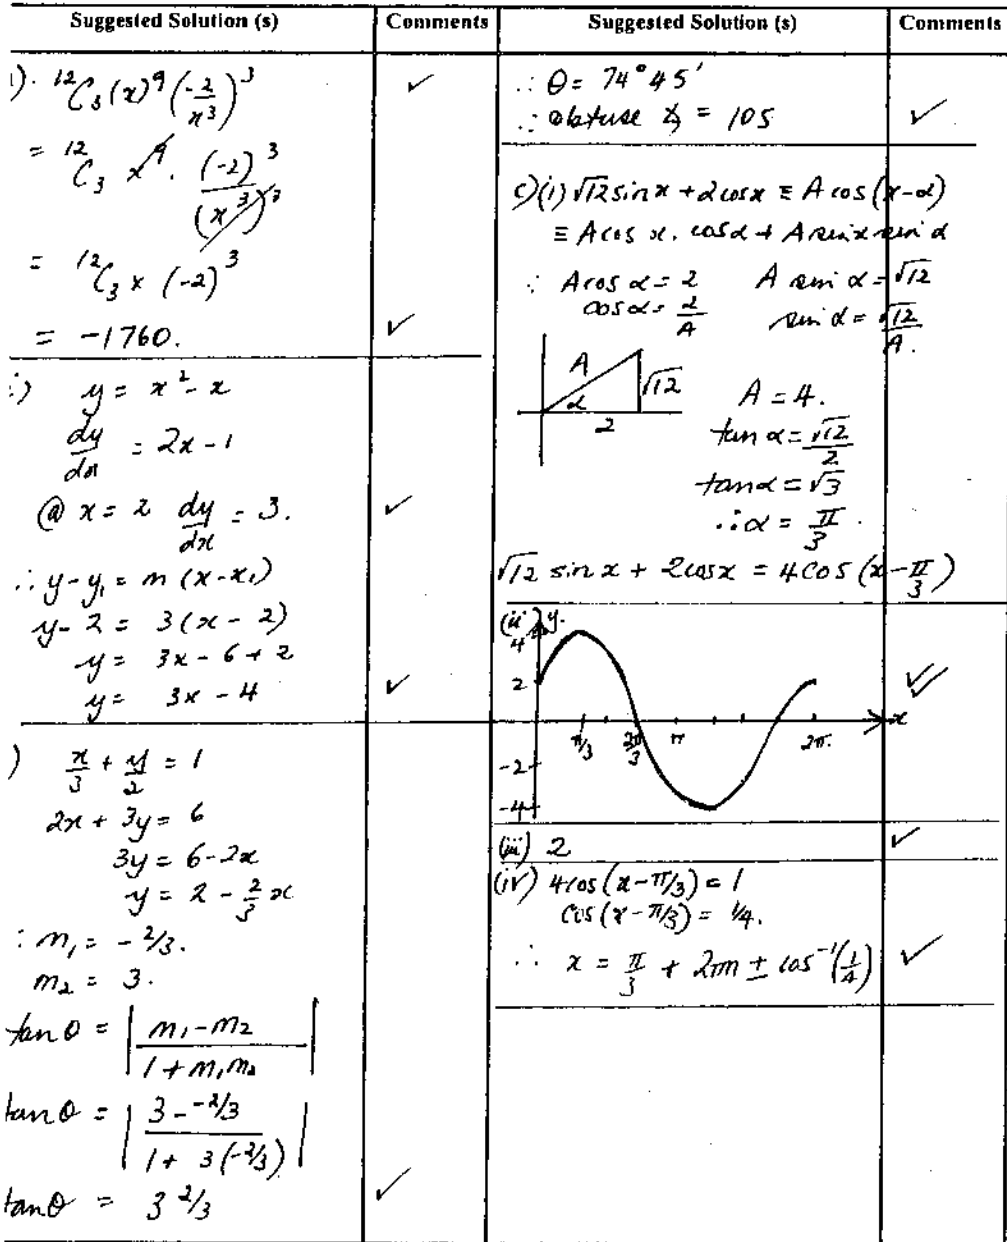 Suggested Solution (s) Comments
). ¹²C₃ (x)⁹ (-2/x³)³ ✓
= ¹²C₃ x⁹ . (-2)³/(x³)³
= ¹²C₃ × (-2)³
= -1760. ✓
:) y = x² - x
dy/dx = 2x - 1
@ x = 2 dy/dx = 3. ✓
∴ y - y₁ = m (x - x₁)
y - 2 = 3(x - 2)
y = 3x - 6 + 2
y = 3x - 4 ✓
) x/3 + y/2 = 1
2x + 3y = 6
3y = 6 - 2x
y = 2 - 2/3 x
: m₁ = -2/3.
m₂ = 3.
tan θ = | (m₁ - m₂)/(1 + m₁m₂) |
tan θ = | (3 - -2/3)/(1 + 3(-2/3)) |
tan θ = 3 2/3 ✓
Suggested Solution (s) Comments
∴ θ = 74° 45'
∴ obtuse ∡ = 105 ✓
c)(i) √12 sin x + 2 cos x ≡ A cos (x - α)
≡ A cos x. cos α + A sin x sin α
∴ A cos α = 2 A sin α = √12
cos α = 2/A sin α = √12/A.
A √12
α
2
A = 4.
tan α = √12/2
tan α = √3
∴ α = π/3.
√12 sin x + 2 cos x = 4 cos (x - π/3)
(ii) y.
4
2 ✓✓
x
π/3 2π/3 π 2π.
-2
-4
(iii) 2 ✓
(iv) 4 cos (x - π/3) = 1
cos (x - π/3) = 1/4.
∴ x = π/3 + 2πn ± cos⁻¹(1/4) ✓